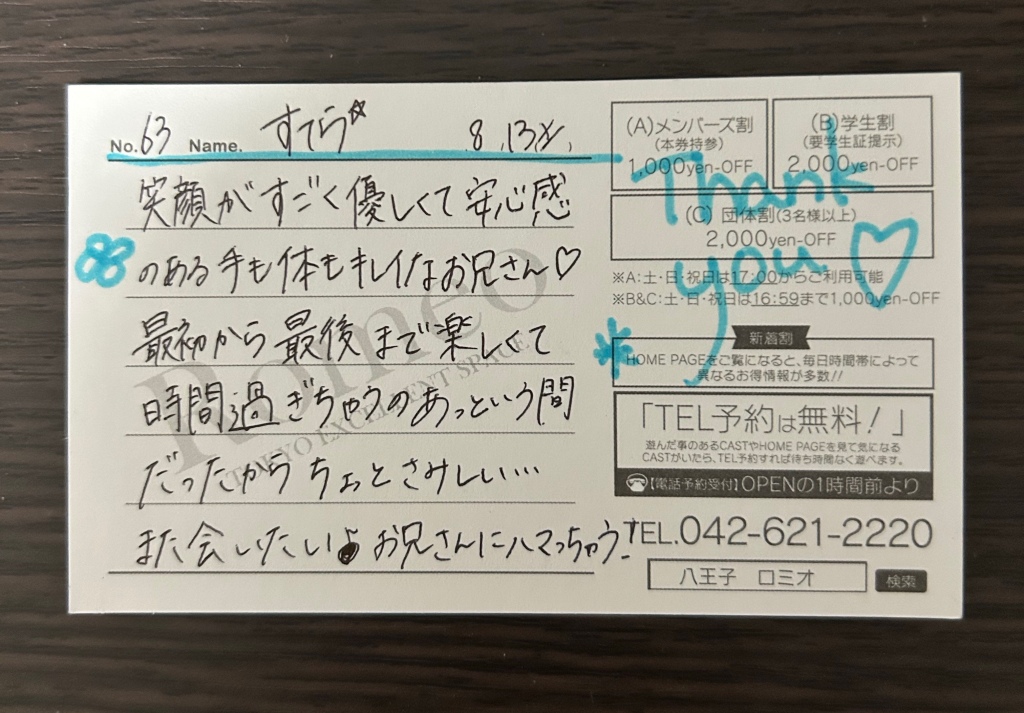 No. 63 Name. すてら☆ 8.13火.
笑顔がすごく優しくて安心感
のある手も体もキレイなお兄さん♡
最初から最後まで楽しくて
時間過ぎちゃうのあっという間
だったからちょっとさみしい…
また会いたいよお兄さんにハマっちゃう!
Romeo
TOKYO EXCELLENT SPACE
(A)メンバーズ割
(本券持参)
1,000yen-OFF
(B)学生割
(要学生証提示)
2,000yen-OFF
(C) 団体割(3名様以上)
2,000yen-OFF
Thank
you ♡
※A:土・日・祝日は17:00からご利用可能
※B&C:土・日・祝日は16:59まで1,000yen-OFF
新着割
HOME PAGEをご覧になると、毎日時間帯によって
異なるお得情報が多数!!
「TEL予約は無料!」
遊んだ事のあるCASTやHOME PAGEを見て気になる
CASTがいたら、TEL予約すれば待ち時間なく遊べます。
【電話予約受付】OPENの1時間前より
TEL.042-621-2220
八王子 ロミオ 検索